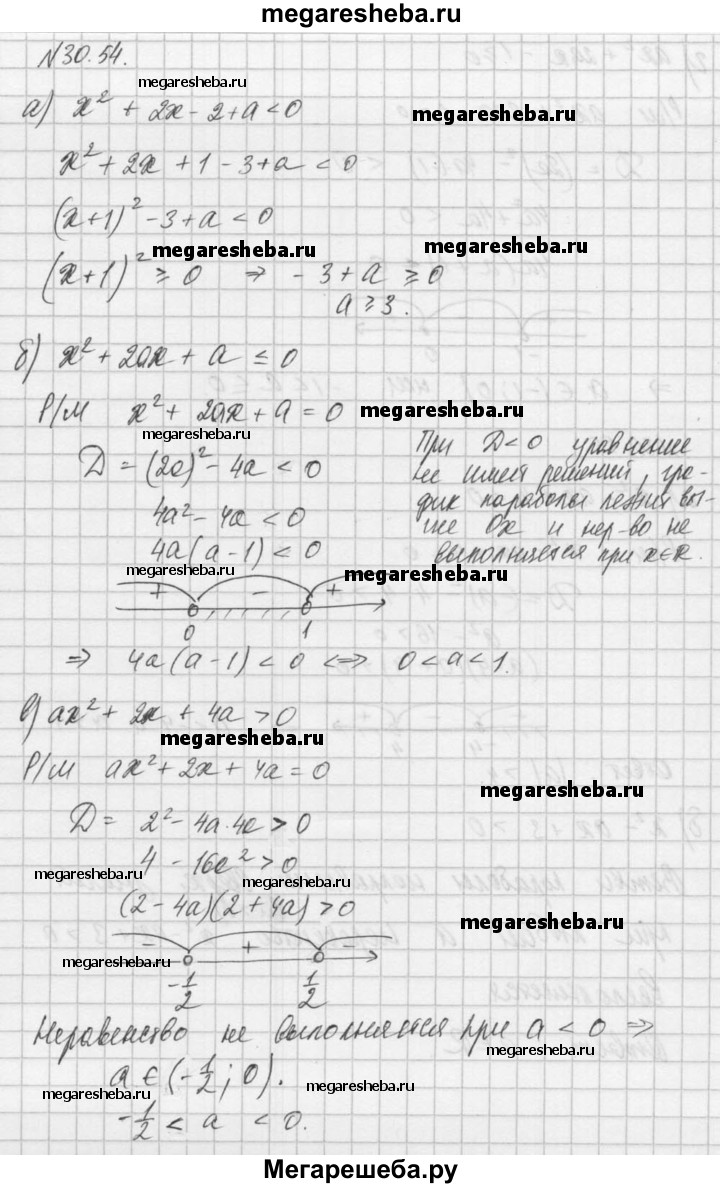 megaresheba.ru
N30.54.
megaresheba.ru
а) x² + 2x - 2 + a < 0
megaresheba.ru
x² + 2x + 1 - 3 + a < 0
(x+1)² - 3 + a < 0
megaresheba.ru megaresheba.ru
(x+1)² ≥ 0 ⇒ - 3 + a ≥ 0
a ≥ 3.
б) x² + 2ax + a ≤ 0
Р/м x² + 2ax + a = 0 megaresheba.ru
megaresheba.ru
D = (2a)² - 4a < 0
4a² - 4a < 0
4a(a - 1) < 0
При D < 0 уравнение
не имеет решений, гра-
фик параболы лежит вы-
ше Ox и нер-во не
выполняется при x∈R.
megaresheba.ru megaresheba.ru
+ - +
0 1
⇒ 4a(a - 1) < 0 ⇔ 0 < a < 1.
в) ax² + 2x + 4a > 0
megaresheba.ru
Р/м ax² + 2x + 4a = 0
megaresheba.ru
D = 2² - 4a·4a > 0
4 - 16a² > 0
megaresheba.ru megaresheba.ru
(2 - 4a)(2 + 4a) > 0
megaresheba.ru
- + -
megaresheba.ru
-1/2 1/2
Неравенство не выполняется при a < 0 ⇒
megaresheba.ru
a ∈ (-1/2; 0).
megaresheba.ru megaresheba.ru
-1/2 < a < 0.
Мегарешеба.ру